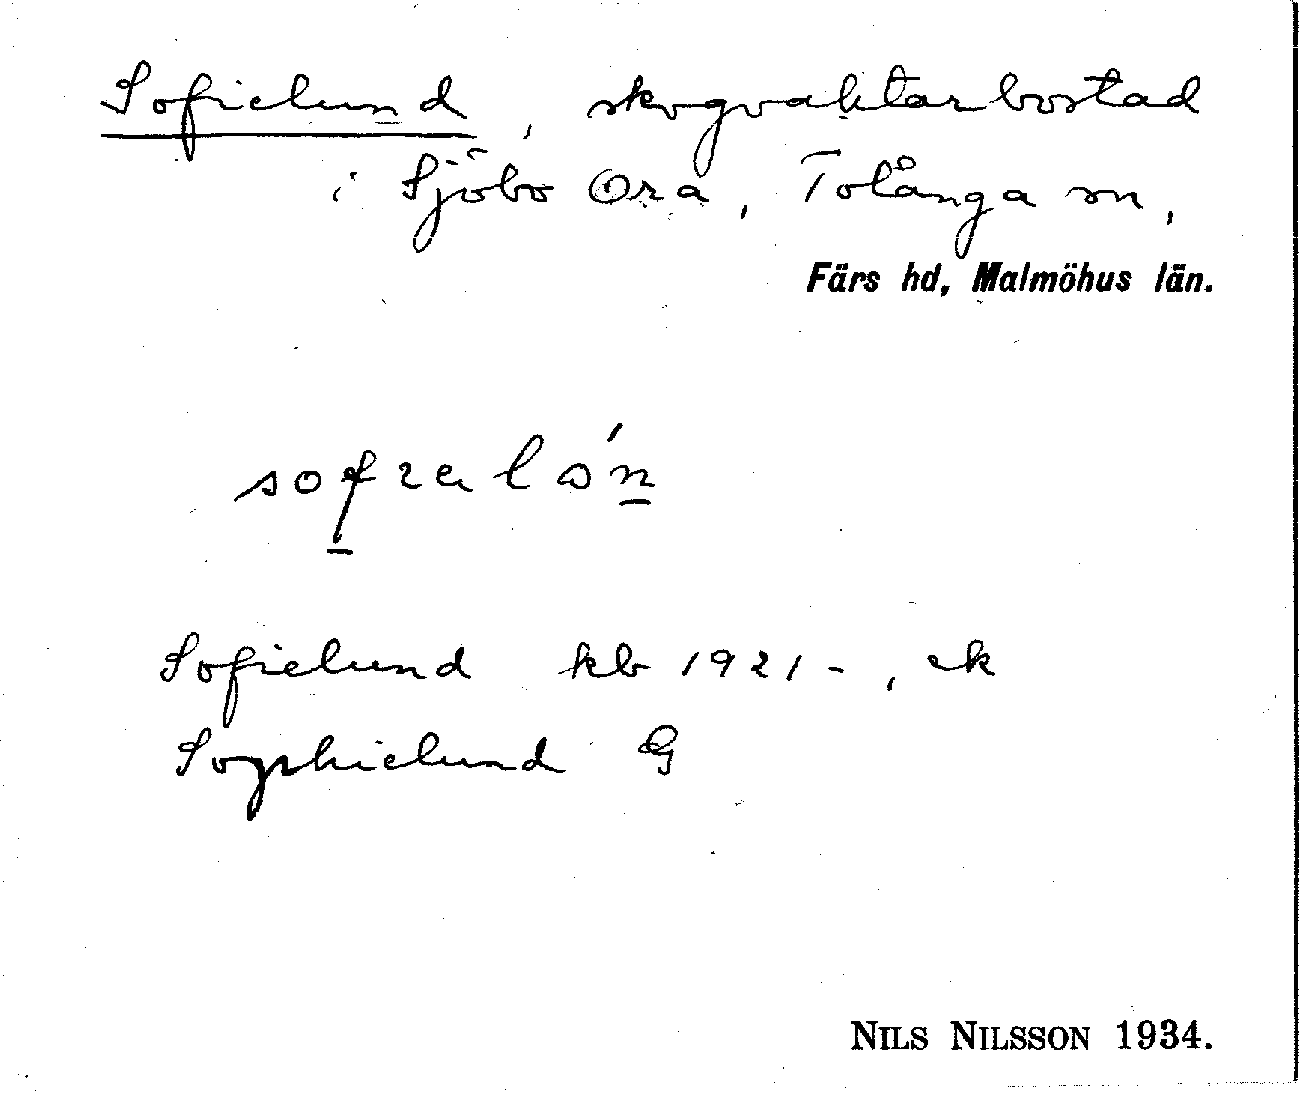 Sofielund, skogvaktarbostad
i Sjöbo Ora, Tolånga sn,
Färs hd, Malmöhus län.
Sofielund kb 1921-, ek
Sophielund G
NILS NILSSON 1934.